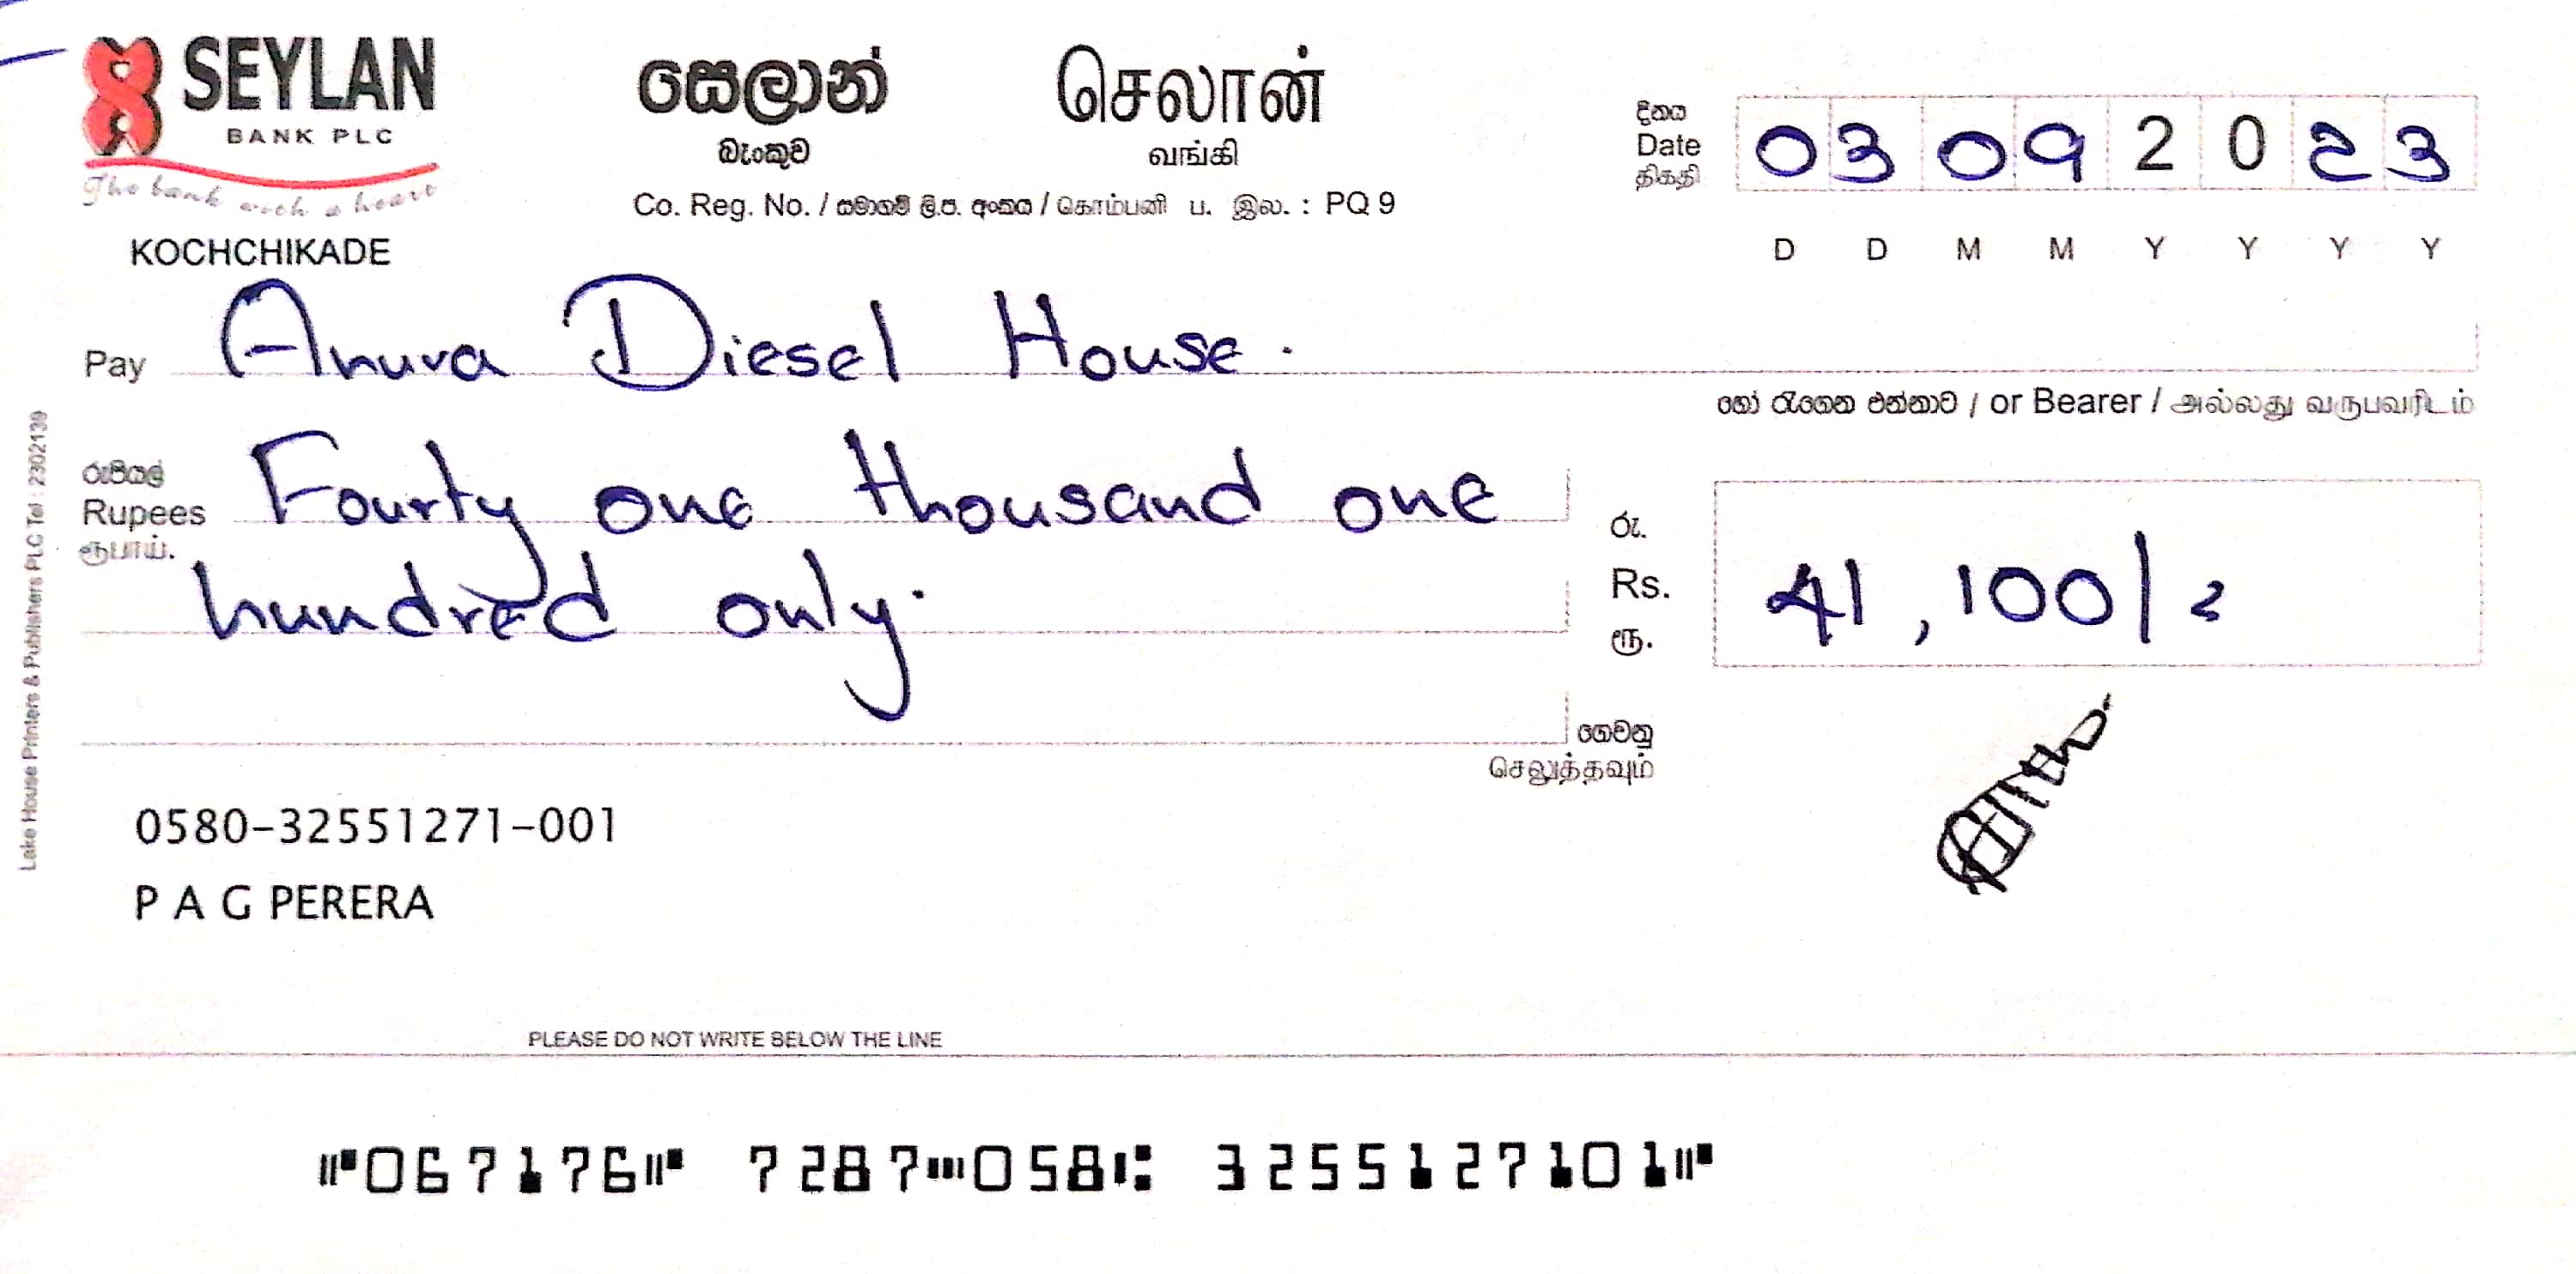 SEYLAN
BANK PLC
The bank with a heart
KOCHCHIKADE
සෙලාන්
බැංකුව
செலான்
வங்கி
Co. Reg. No. / සමාගම් ලි.ප. අංකය / கொம்பனி ப. இல. : PQ 9
දිනය
Date
திகதி
03 09 2023
D D M M Y Y Y Y
Pay Anura Diesel House.
හෝ රැගෙන එන්නාට / or Bearer / அல்லது வருபவரிடம்
රුපියල්
Rupees
ரூபாய்.
Fourty one thousand one
hundred only.
රු.
Rs.
ரூ.
41,100/=
ගෙවනු
செலுத்தவும்
0580-32551271-001
P A G PERERA
Lake House Printers & Publishers PLC Tel : 2302139
PLEASE DO NOT WRITE BELOW THE LINE
⑈067176⑈ 7287⑉058⑆ 325512710 1⑈